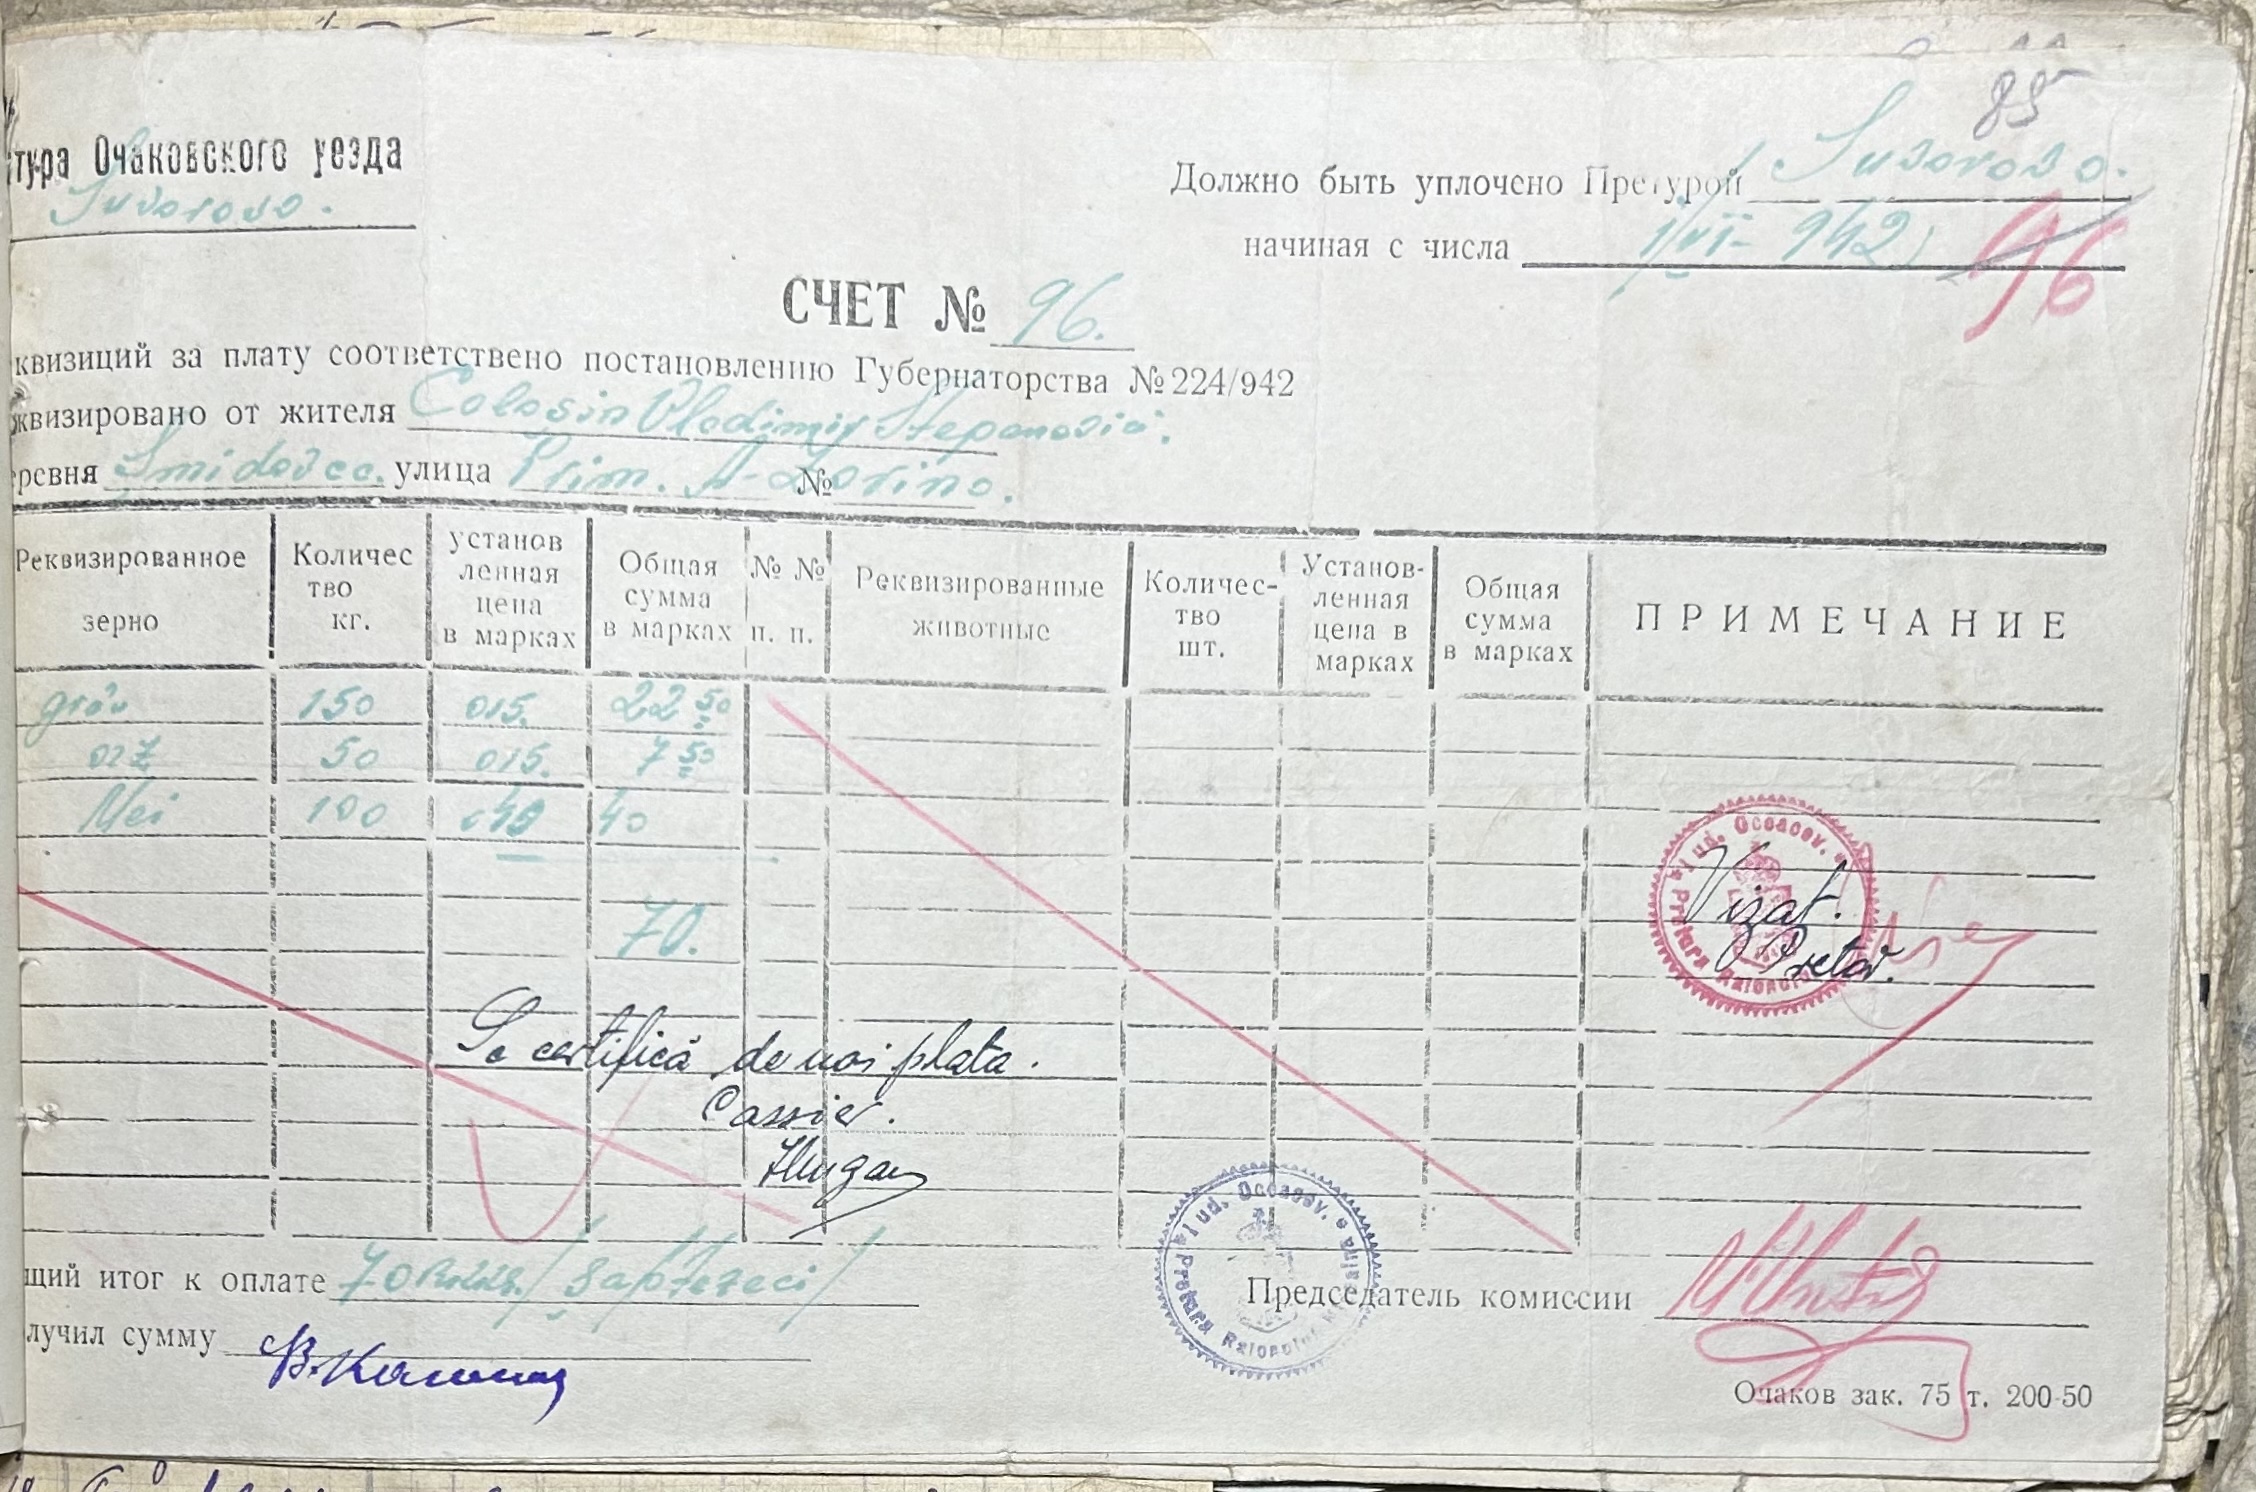 85
тура Очаковского уезда
Suvorovo.
Должно быть уплочено Претурой Suvorovo.
начиная с числа 1/VI-942
96
СЧЕТ № 96.
квизиций за плату соответствено постановлению Губернаторства №224/942
квизировано от жителя Colosin Vladimir Stepanovici.
ревня Smidovca. улица Prim. A-Zorino. №
Реквизированное зерно | Количес тво кг. | установ ленная цена в марках | Общая сумма в марках | № № п. п. | Реквизированные животные | Количес- тво шт. | Установ- ленная цена в марках | Общая сумма в марках | ПРИМЕЧАНИЕ
grâu 150 015. 22 50
orz 50 015. 7 50
Mei 100 40 40
70.
Jud. Oceacov. Pretura Raionului
Vizat.
Pretor.
Se certifică de noi plata.
Cassier.
щий итог к оплате 70 /șaptezeci/
Jud. Oceacov. Pretura Raionului
Председатель комиссии
лучил сумму
Очаков зак. 75 т. 200-50